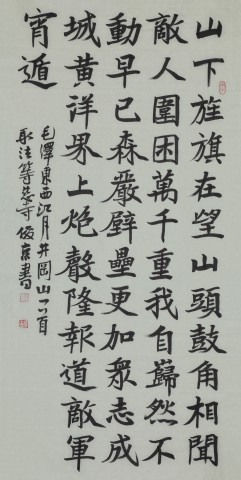 山下旌旗在望山頭鼓角相聞
敵人圍困萬千重我自巋然不
動早已森嚴壁壘更加衆志成
城黃洋界上炮聲隆報道敵軍
宵遁
毛澤東西江月井岡山一首
取法等慈寺俊書